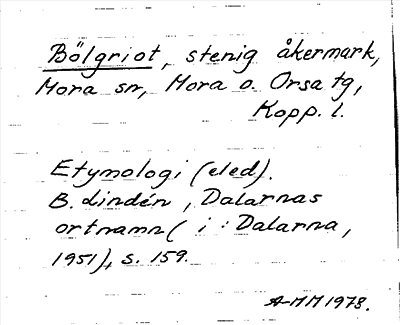 Bölgriot, stenig åkermark,
Mora sn, Mora o. Orsa tg,
Kopp. l.
Etymologi (eled).
B. Lindén, Dalarnas
ortnamn ( i : Dalarna,
1951), s. 159.
A-MM 1978.